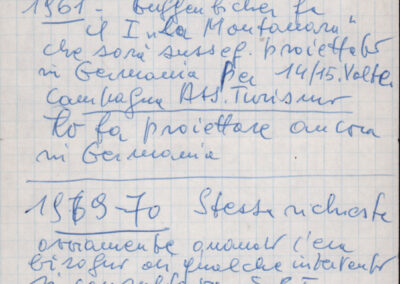 1961 - Guggenbichler fa
il I " La Montanara "
che sarà susseg. proiettato
in Germania per 14/15. Volte
Campagna Ass. Turismo
Lo fa proiettare ancora
in Germania
1969-70 Stessa richiesta
ovviamente quando c'era
bisogno di qualche intervento